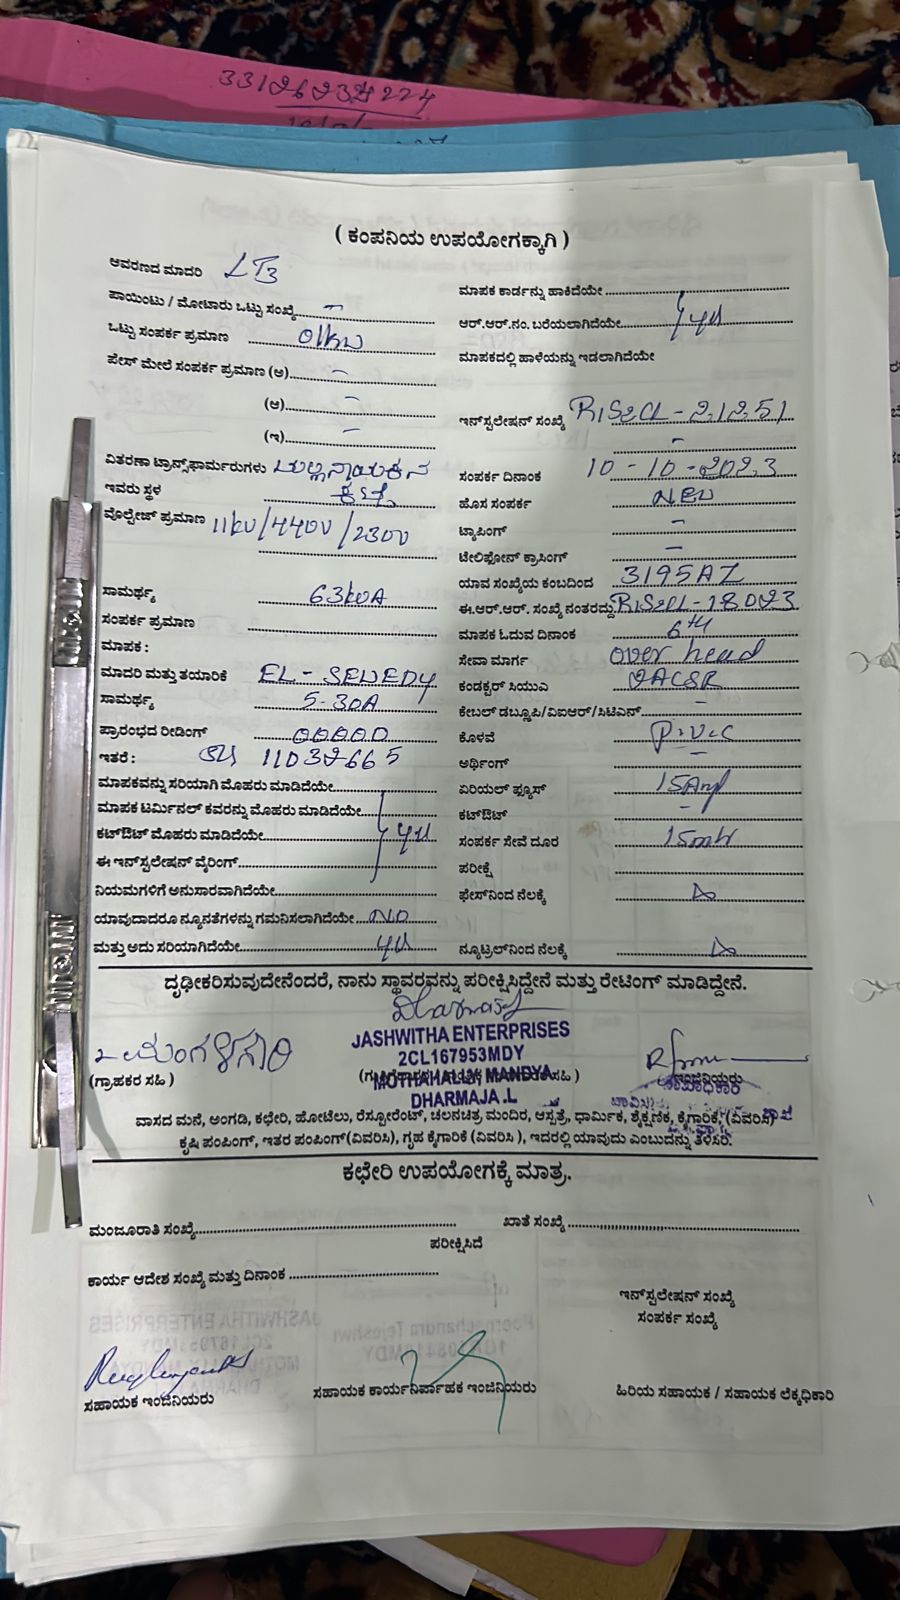 331262324224
( ಕಂಪನಿಯ ಉಪಯೋಗಕ್ಕಾಗಿ )
ಆವರಣದ ಮಾದರಿ LT3
ಮಾಪಕ ಕಾರ್ಡನ್ನು ಹಾಕಿದೆಯೇ
ಪಾಯಿಂಟು / ಮೋಟಾರು ಒಟ್ಟು ಸಂಖ್ಯೆ -
ಆರ್.ಆರ್.ನಂ. ಬರೆಯಲಾಗಿದೆಯೇ
ಒಟ್ಟು ಸಂಪರ್ಕ ಪ್ರಮಾಣ 01kw
ಮಾಪಕದಲ್ಲಿ ಹಾಳೆಯನ್ನು ಇಡಲಾಗಿದೆಯೇ
ಫೇಸ್ ಮೇಲೆ ಸಂಪರ್ಕ ಪ್ರಮಾಣ (ಅ) -
(ಆ) -
ಇನ್‌ಸ್ಟಲೇಷನ್ ಸಂಖ್ಯೆ -21251
(ಇ) -
ವಿತರಣಾ ಟ್ರಾನ್ಸ್‌ಫಾರ್ಮರುಗಳು ಮಲ್ಲನಾಯಕನ
ಸಂಪರ್ಕ ದಿನಾಂಕ 10-10-2023
ಇವರು ಸ್ಥಳ ಕಟ್ಟೆ
ಹೊಸ ಸಂಪರ್ಕ NEW
ವೋಲ್ಟೇಜ್ ಪ್ರಮಾಣ 11kv/440v/230v
ಟ್ಯಾಪಿಂಗ್ -
ಟೇಲಿಫೋನ್ ಕ್ರಾಸಿಂಗ್ -
ಸಾಮರ್ಥ್ಯ 63kvA
ಯಾವ ಸಂಖ್ಯೆಯ ಕಂಬದಿಂದ 3195AZ
ಸಂಪರ್ಕ ಪ್ರಮಾಣ
ಈ.ಆರ್.ಆರ್. ಸಂಖ್ಯೆ ನಂತರದ್ದು -18023
ಮಾಪಕ :
ಮಾಪಕ ಓದುವ ದಿನಾಂಕ 6th
ಮಾದರಿ ಮತ್ತು ತಯಾರಿಕೆ EL-SEWEDY
ಸೇವಾ ಮಾರ್ಗ over head
ಸಾಮರ್ಥ್ಯ 5-30A
ಕಂಡಕ್ಟರ್ ಸಿಯುಎ ACSR
ಪ್ರಾರಂಭದ ರೀಡಿಂಗ್ 00000
ಕೇಬಲ್ ಡಬ್ಲ್ಯೂಪಿ/ವಿಐಆರ್/ಸಿಟಿಎನ್ -
ಇತರೆ : 11032665
ಕೊಳವೆ P.V.C
ಅರ್ಥಿಂಗ್ -
ಮಾಪಕವನ್ನು ಸರಿಯಾಗಿ ಮೊಹರು ಮಾಡಿದೆಯೇ
ಏರಿಯಲ್ ಫ್ಯೂಸ್ 15Amp
ಮಾಪಕ ಟರ್ಮಿನಲ್ ಕವರನ್ನು ಮೊಹರು ಮಾಡಿದೆಯೇ
ಕಟ್‌ಔಟ್ -
ಕಟ್‌ಔಟ್ ಮೊಹರು ಮಾಡಿದೆಯೇ
ಸಂಪರ್ಕ ಸೇವೆ ದೂರ 15mtr
ಈ ಇನ್‌ಸ್ಟಲೇಷನ್ ವೈರಿಂಗ್
ಪರೀಕ್ಷೆ
ನಿಯಮಗಳಿಗೆ ಅನುಸಾರವಾಗಿದೆಯೇ
ಫೇಸ್‌ನಿಂದ ನೆಲಕ್ಕೆ
ಯಾವುದಾದರೂ ನ್ಯೂನತೆಗಳನ್ನು ಗಮನಿಸಲಾಗಿದೆಯೇ NO
ಮತ್ತು ಅದು ಸರಿಯಾಗಿದೆಯೇ
ನ್ಯೂಟ್ರಲ್‌ನಿಂದ ನೆಲಕ್ಕೆ
ದೃಢೀಕರಿಸುವುದೇನೆಂದರೆ, ನಾನು ಸ್ಥಾವರವನ್ನು ಪರೀಕ್ಷಿಸಿದ್ದೇನೆ ಮತ್ತು ರೇಟಿಂಗ್ ಮಾಡಿದ್ದೇನೆ.
JASHWITHA ENTERPRISES
ಮಂಗಳಗೌರಿ
2CL167953MDY
(ಗ್ರಾಹಕರ ಸಹಿ )
MOTHAHALLY, MANDYA
ಸಹಿ )
ಇಂಜಿನಿಯರು
DHARMAJA .L
ವಾಸದ ಮನೆ, ಅಂಗಡಿ, ಕಛೇರಿ, ಹೋಟೆಲು, ರೆಸ್ಟೋರೆಂಟ್, ಚಲನಚಿತ್ರ ಮಂದಿರ, ಆಸ್ಪತ್ರೆ, ಧಾರ್ಮಿಕ, ಶೈಕ್ಷಣಿಕ, ಕೈಗಾರಿಕೆ, (ವಿವರಿಸಿ)
ಕೃಷಿ ಪಂಪಿಂಗ್, ಇತರ ಪಂಪಿಂಗ್(ವಿವರಿಸಿ), ಗೃಹ ಕೈಗಾರಿಕೆ (ವಿವರಿಸಿ ), ಇದರಲ್ಲಿ ಯಾವುದು ಎಂಬುದನ್ನು ತಿಳಿಸಿರಿ.
ಕಛೇರಿ ಉಪಯೋಗಕ್ಕೆ ಮಾತ್ರ.
ಮಂಜೂರಾತಿ ಸಂಖ್ಯೆ
ಖಾತೆ ಸಂಖ್ಯೆ
ಪರೀಕ್ಷಿಸಿದೆ
ಕಾರ್ಯ ಆದೇಶ ಸಂಖ್ಯೆ ಮತ್ತು ದಿನಾಂಕ
ಇನ್‌ಸ್ಟಲೇಷನ್ ಸಂಖ್ಯೆ
ಸಂಪರ್ಕ ಸಂಖ್ಯೆ
ಸಹಾಯಕ ಇಂಜಿನಿಯರು
ಸಹಾಯಕ ಕಾರ್ಯನಿರ್ವಾಹಕ ಇಂಜಿನಿಯರು
ಹಿರಿಯ ಸಹಾಯಕ / ಸಹಾಯಕ ಲೆಕ್ಕಧಿಕಾರಿ